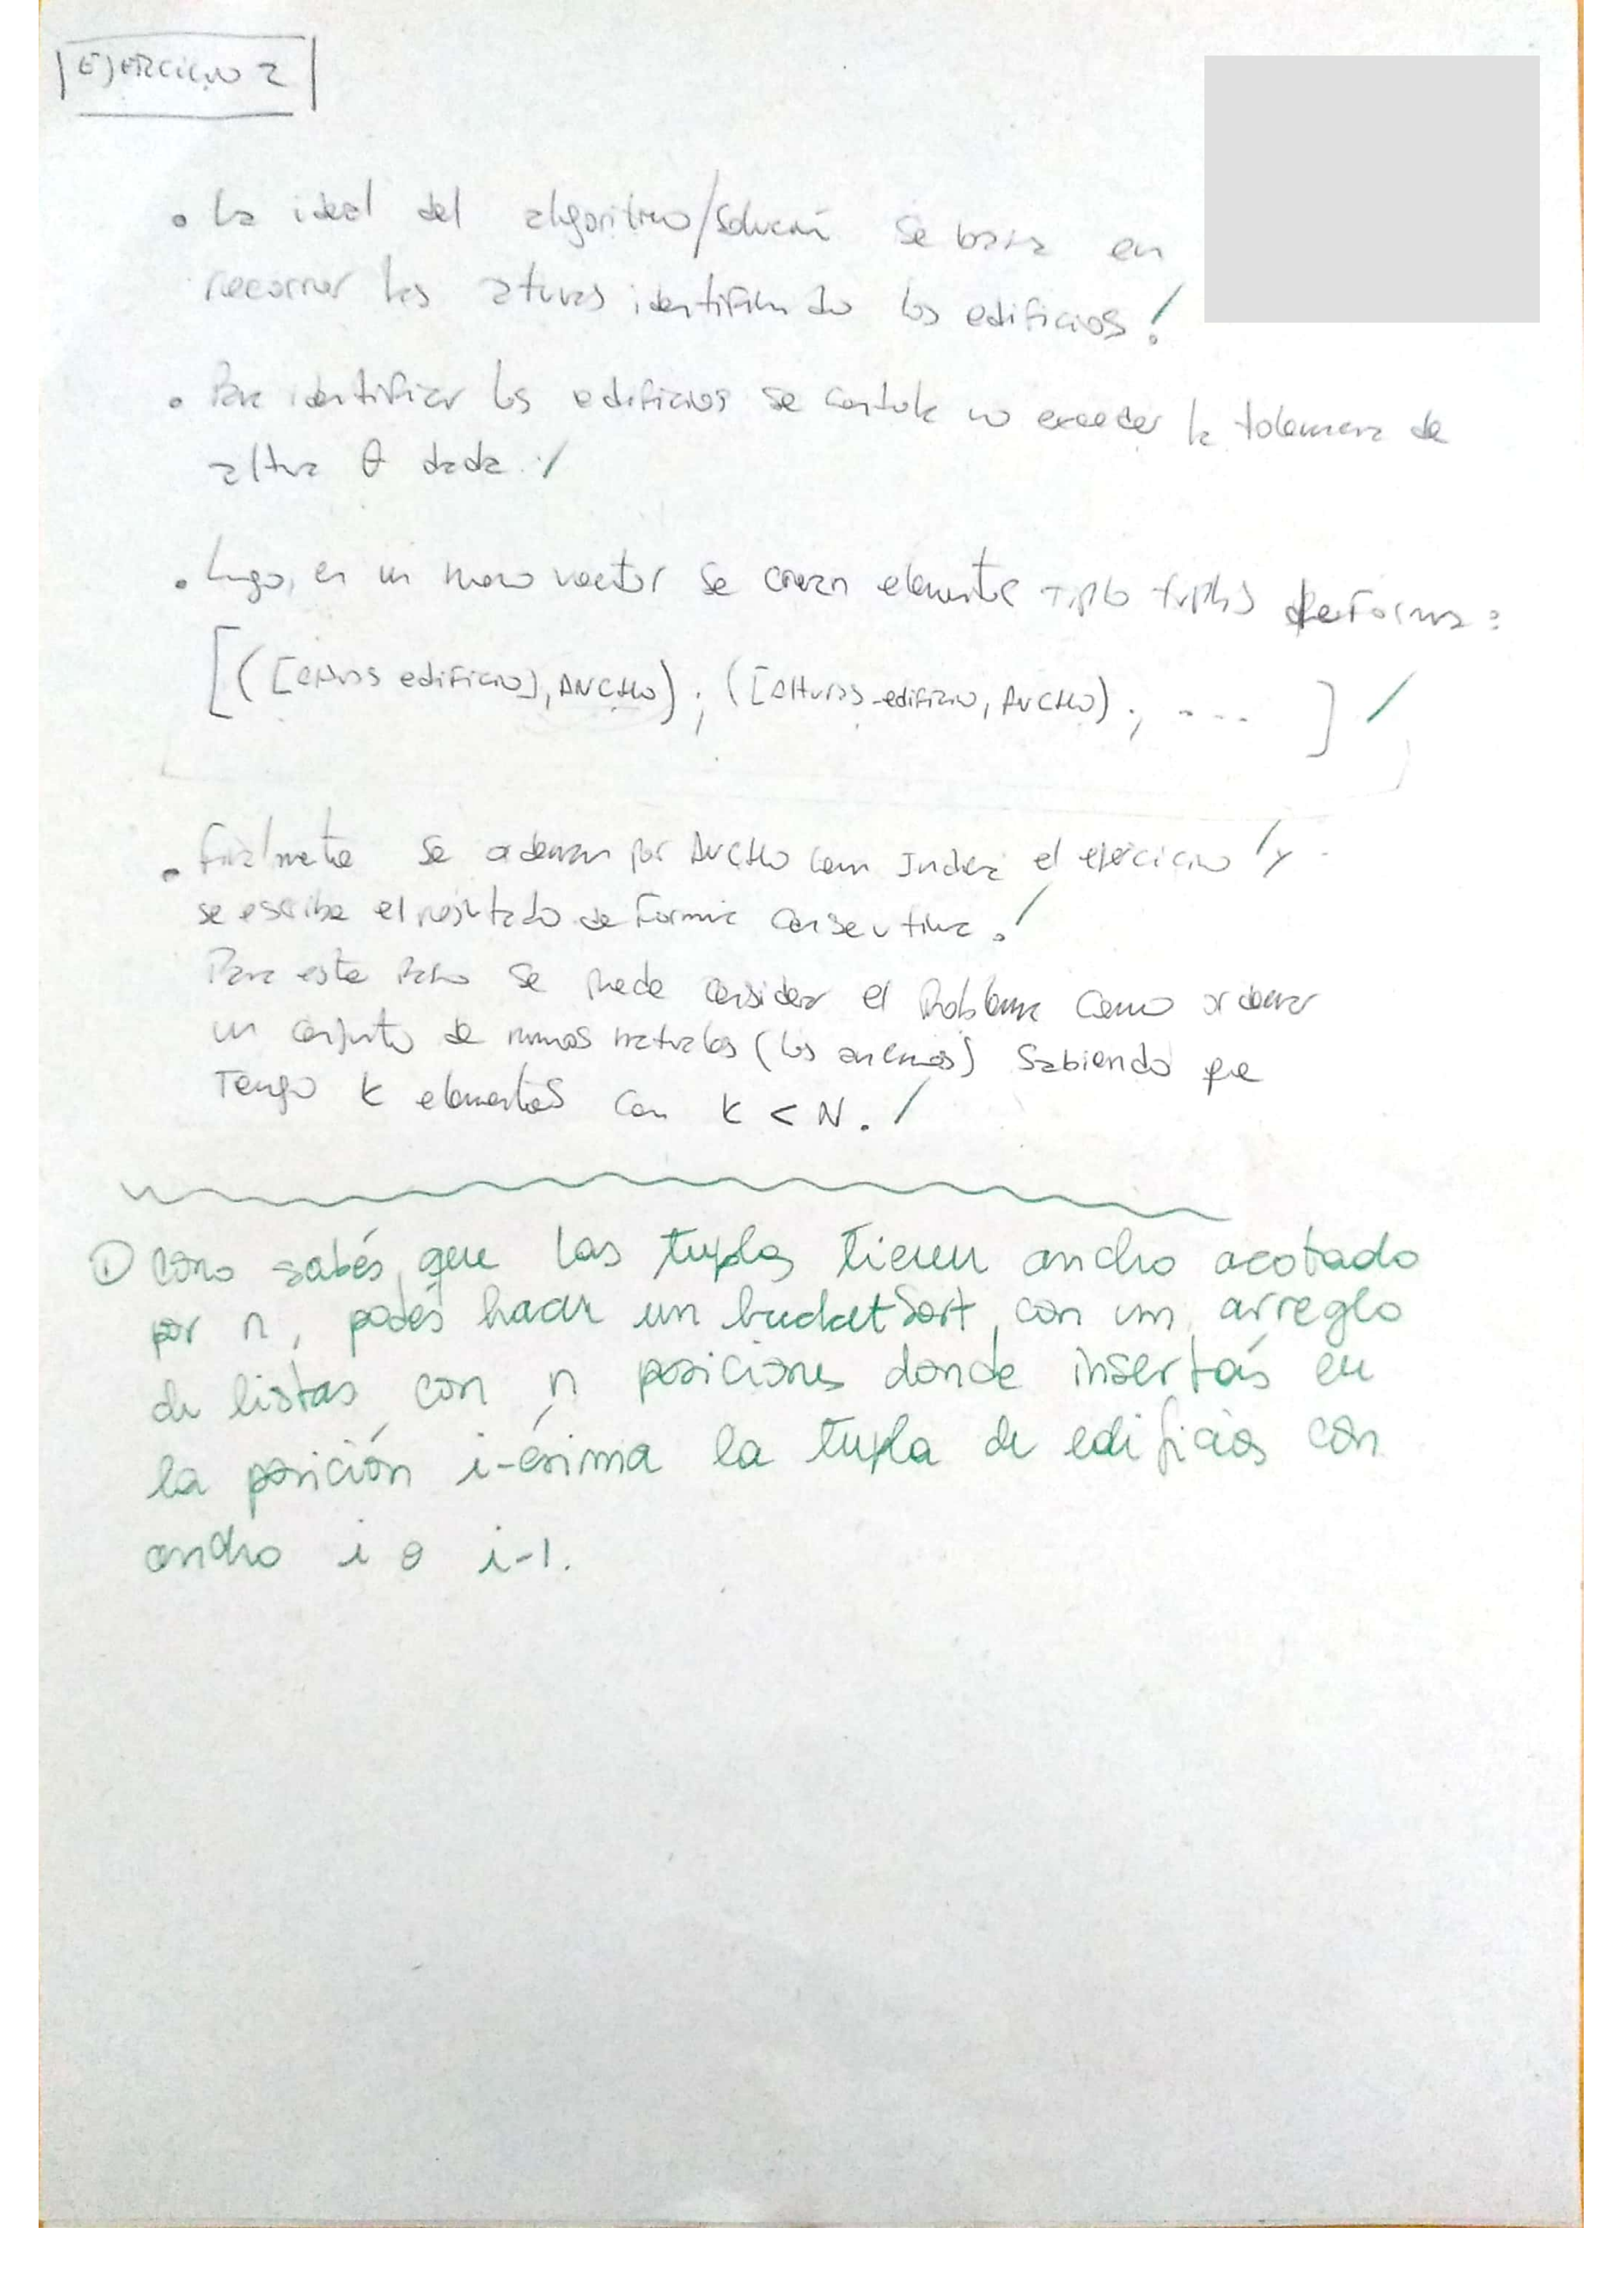 EJERCICIO 2
• La ideal del algoritmo/solución se basa en
recorrer las alturas identificando los edificios.
• Para identificar los edificios se controla no exceder la tolerancia de
altura θ dada.
• Luego, en un nuevo vector se crean elementos tipo tuplas de forma:
[([alturas edificio], ANCHO); ([alturas_edificio, ANCHO); .... ]
• Finalmente se ordenan por ANCHO como indica el ejercicio y
se escribe el resultado de forma consecutiva.
Para este paso se puede considerar el problema como ordenar
un conjunto de numos naturales (los anchos) sabiendo que
tengo K elementos con K < N.
① Como sabés que las tuplas tienen ancho acotado
por n, podés hacer un bucketSort con un arreglo
de listas con n posiciones donde insertás en
la posición i-ésima la tupla de edificios con
ancho i o i-1.